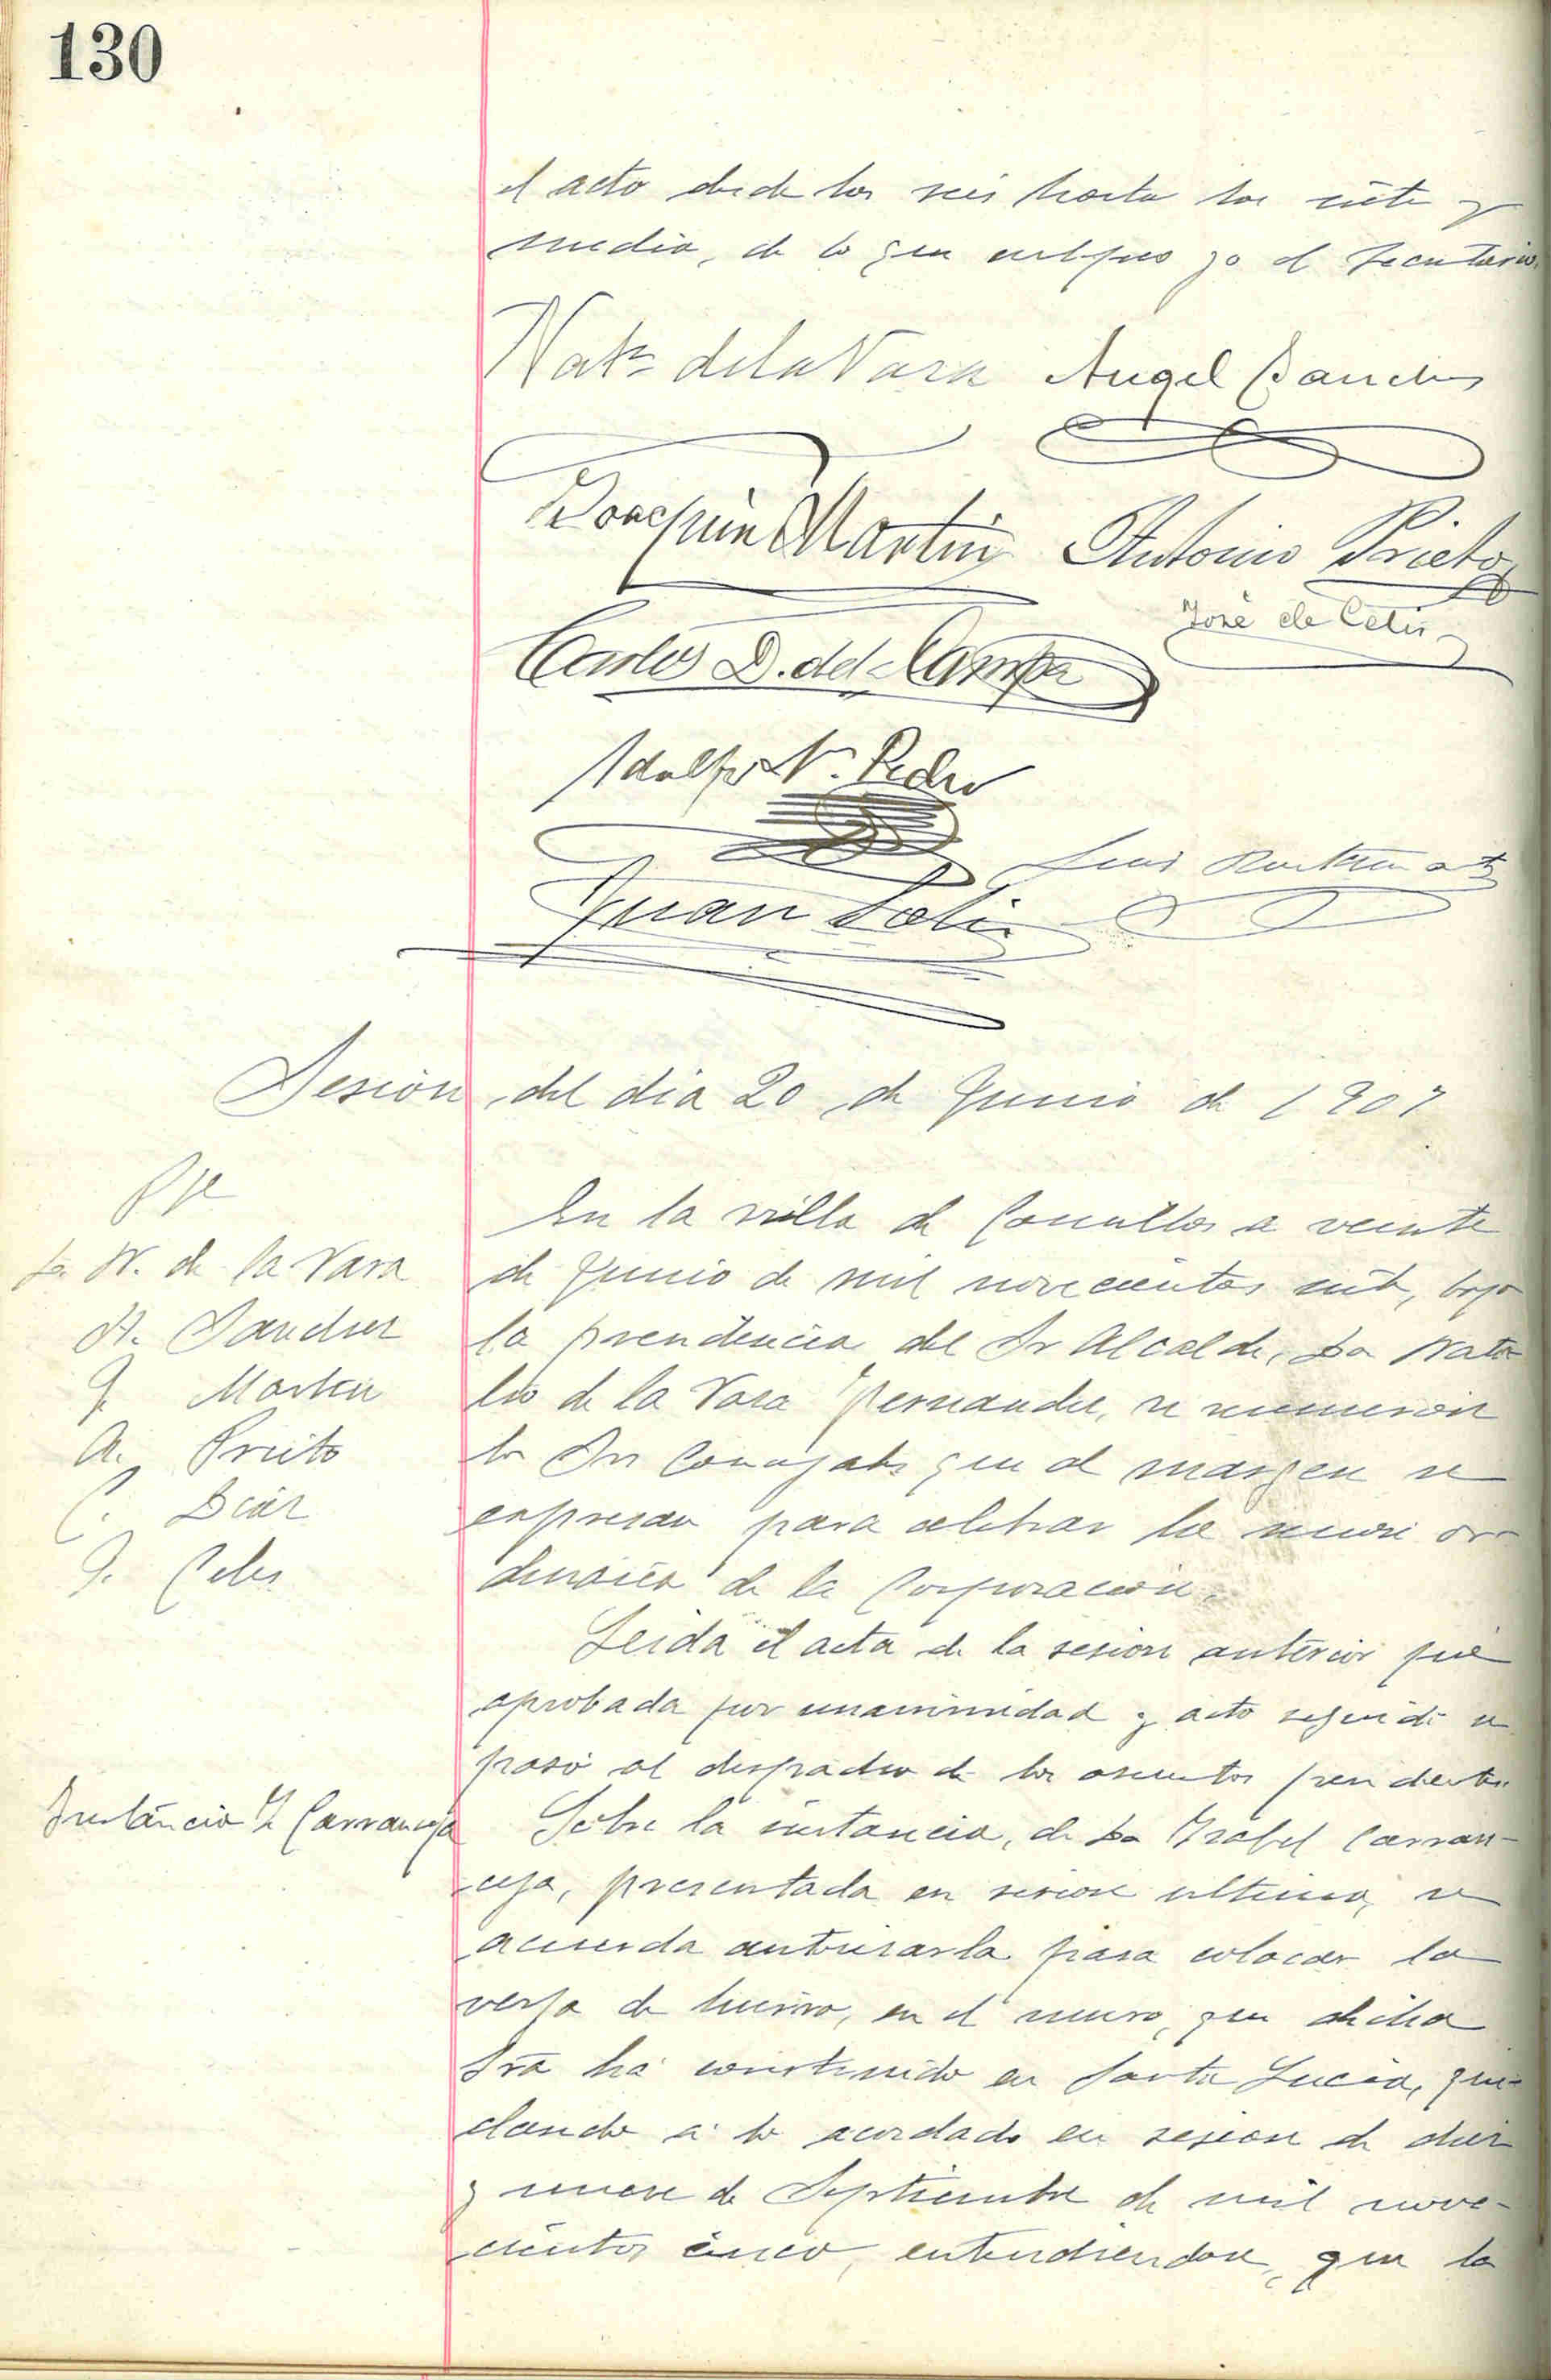 130
el acto desde las seis hasta las siete y
media, de lo que certifico yo el Secretario.
Nat.º de la Vara Angel Sanchez
Joaquin Martin Antonio Prieto
José de Celis
Carlos D. del Campo
Adolfo Pedro
Luis
Juan Celis
Sesion del dia 20 de Junio de 1907
Pte
Dn. N. de la Vara
A. Sanchez
J. Martin
A. Prieto
C. Diaz
J. Celis
En la villa de Comillas a veinte
de Junio de mil novecientos siete, bajo
la presidencia del Sr Alcalde, Dn Nata
lio de la Vara Hernandez, se reunieron
los Srs Concejales que al margen se
expresan para celebrar la sesion or-
dinaria de la Corporacion.
Leida el acta de la sesion anterior fué
aprobada por unanimidad y acto seguido se
pasó al despacho de los asuntos pendientes.
Instáncia I. Carranceja
Sobre la instancia, de Da Isabel Carran-
ceja, presentada en sesion ultima, se
acuerda autorizarla para colocar la
verja de hierro, en el muro, que dicha
Sra há construido en Santa Lucia, que-
dando á lo acordado en sesion de diez
y nueve de Septiembre de mil nove-
cientos cinco, entendiendose, que la